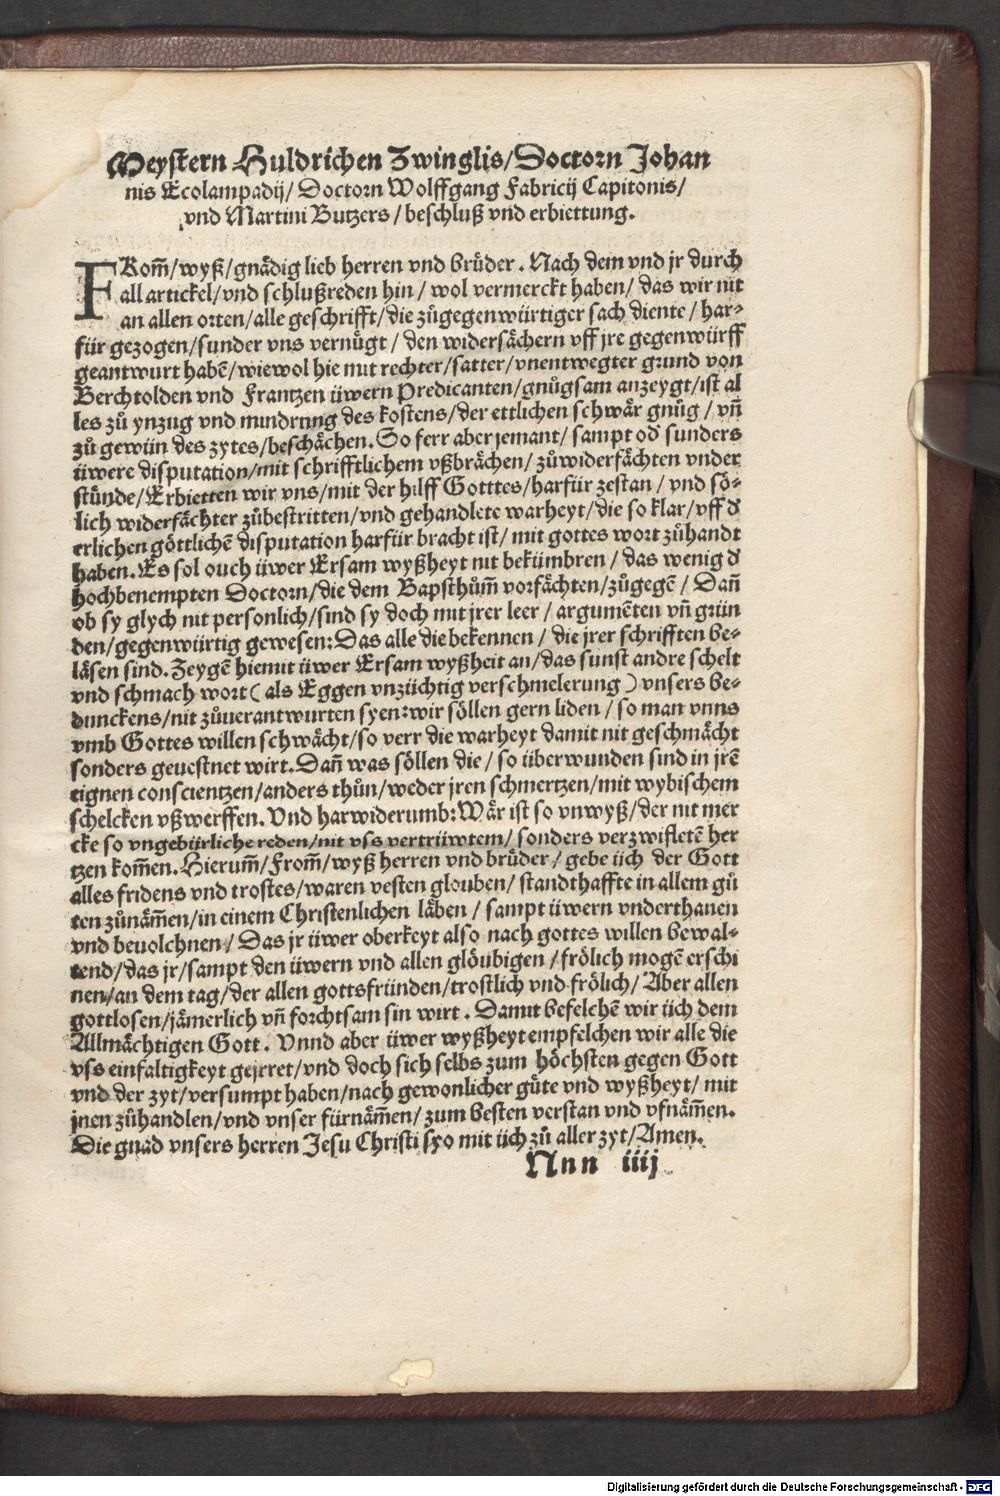 Meystern Huldrichen Zwinglis/ Doctorn Johan
nis Ecolampadij/ Doctorn Wolffgang Fabricij Capitonis/
vnd Martini Butzers / beschluß vnd erbiettung.
FRom̃/ wyß/ gnådig lieb herren vnd brüder. Nach dem vnd jr durch
all artickel/ vnd schlußreden hin / wol vermerckt haben/ das wir nit
an allen orten/ alle geschrifft/ die zůgegenwürtiger sach diente/ har⸗
für gezogen/ sunder vns vernügt / den widersåchern vff jre gegenwürff
geantwurt habē/ wiewol hie mit rechter/ satter/ vnentwegter grund von
Berchtolden vnd Frantzen üwern Predicanten/ gnůgsam anzeygt/ ist al
les zů ynzug vnd mindrung des kostens/ der ettlichen schwår gnůg / vñ
zů gewün des zytes/ beschåchen. So ferr aber jemant/ sampt od̕ sunders
üwere disputation/ mit schrifftlichem vßbråchen/ zůwiderfåchten vnder
stünde/ Erbietten wir vns/ mit der hilff Gotttes/ harfür zestan / vnd sö⸗
lich widerfåchter zůbestritten/ vnd gehandlete warheyt/ die so klar/ vff d̕
erlichen göttlichē disputation harfür bracht ist/ mit gottes wort zůhandt
haben. Es sol ouch üwer Ersam wyßheyt nit bekümbren / das wenig d̕
hochbenempten Doctorn/ die dem Bapsthům̃ vorfåchten/ zůgegē / Dañ
ob sy glych nit personlich/ sind sy doch mit jrer leer / argumēten vñ grün
den/ gegenwürtig gewesen: Das alle die bekennen / die jrer schrifften be⸗
låsen sind. Zeygē hiemit üwer Ersam wyßheit an/ das sunst andre schelt
vnd schmach wort ( als Eggen vnzüchtig verschmelerung ) vnsers be⸗
dunckens/ nit zůuerantwurten syen: wir söllen gern liden / so man vnns
vmb Gottes willen schwåcht/ so verr die warheyt damit nit geschmåcht
sonders geuestnet wirt. Dañ was söllen die / so überwunden sind in jrē
eignen conscientzen/ anders thůn/ weder jren schmertzen/ mit wybischem
schelcken vßwerffen. Vnd harwiderumb: Wår ist so vnwyß/ der nit mer
cke so vngebürliche reden/ nit vss vertrüwtem/ sonders verzwifletē her
tzen kom̃en. Hierum̃/ From̃/ wyß herren vnd brüder / gebe üch der Gott
alles fridens vnd trostes/ waren vesten glouben/ standthaffte in allem gů
ten zůnåm̃en/ in einem Christenlichen låben / sampt üwern vnderthanen
vnd beuolchnen / Das jr üwer oberkeyt also nach gottes willen bewal⸗
tend/ das jr/ sampt den üwern vnd allen glöubigen / frölich mogē erschi
nen/ an dem tag/ der allen gottsfründen/ trostlich vnd frölich/ Aber allen
gottlosen/ jåmerlich vñ forchtsam sin wirt. Damit befelchē wir üch dem
Allmåchtigen Gott. Vnnd aber üwer wyßheyt empfelchen wir alle die
vss einfaltigkeyt gejrret/ vnd doch sich selbs zum höchsten gegen Gott
vnd der zyt/ versumpt haben/ nach gewonlicher güte vnd wyßheyt/ mit
jnen zůhandlen/ vnd vnser fürnåm̃en/ zum besten verstan vnd vfnåm̃en.
Die gnad vnsers herren Jesu Christi sye mit üch zů aller zyt/ Amen.
Nnn iiij
Digitalisierung gefördert durch die Deutsche Forschungsgemeinschaft - DFG